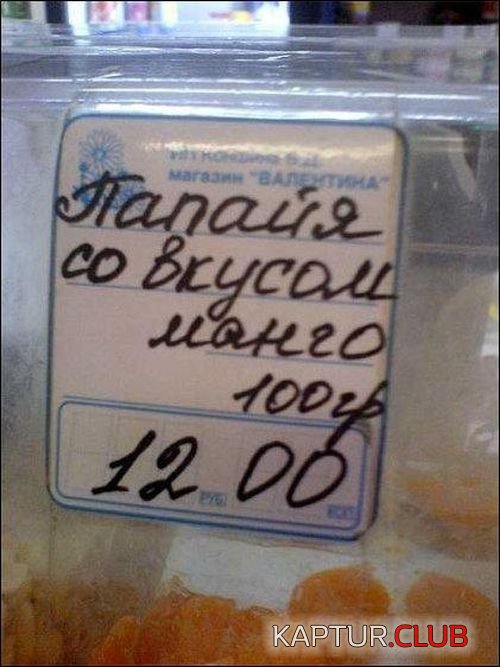 ИП Конфина В.Д.
магазин "ВАЛЕНТИНА"
Папайя
со вкусом
манго
100гр
12 00
РУБ. КОП.
KAPTUR.CLUB